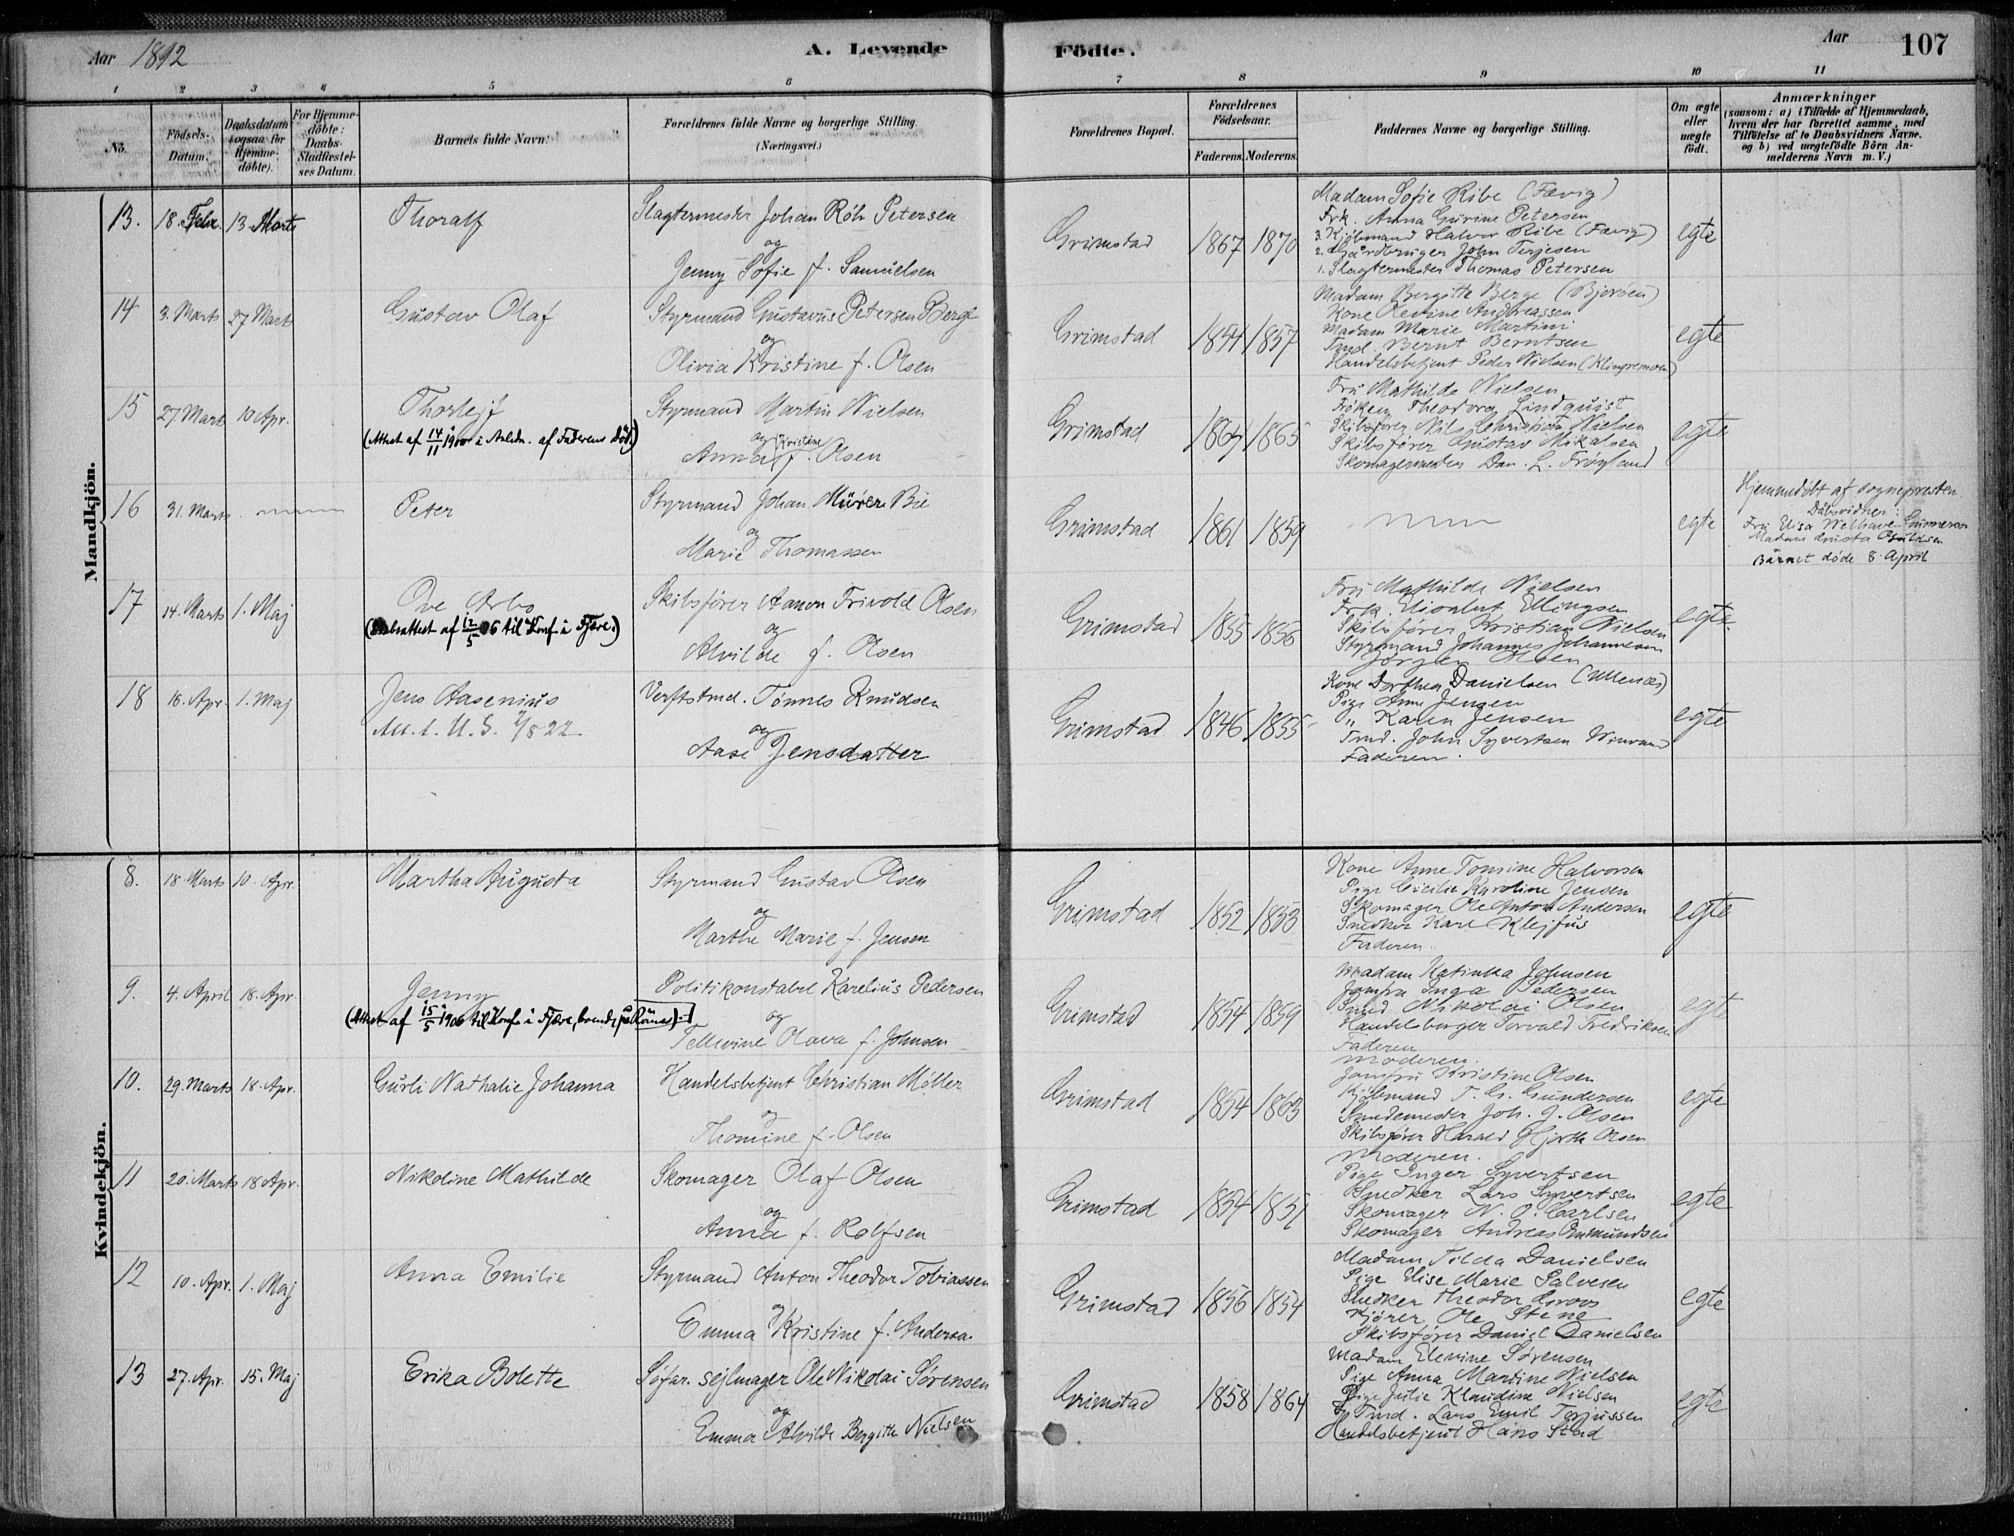 Aar 1892
A. Levende
Födte.
Aar
107
1 2 3 4 5 6 7 8 9 10 11
No.
Födsels-Datum.
Daabsdatum (ogsaa for Hjemme-döbte).
For Hjemme-döbte: Daabs-Stadfæstel-ses Datum.
Barnets fulde Navn.
Forældrenes fulde Navne og borgerlige Stilling.
(Næringsvei.)
Forældrenes Bopæl.
Forældrenes Födselsaar.
Faderens. Moderens.
Faddernes Navne og borgerlige Stilling.
Om ægte eller uægte födt.
Anmærkninger
(saasom: a) i Tilfælde af Hjemmedaab, hvem der har forrettet samme, med Tilföielse af to Daabsvidners Navne. og b) ved uægtefödte Börn An-melderens Navn m. V.)
Mandkjön.
13. 18. Febr. 13. Marts Thoralf
Slagtermester Johan Röh Petersen
og
Jenny Sofie f. Samuelsen
Grimstad 1867 1870
Madam Sofie Ribe (Fævig)
Frk. Anna Gurine Petersen
3. Kjöbmand Halvor Ribe (Fævig)
2. Gårdbruger John Terjesen
1. Slagtermester Thomas Petersen
egte
14 3. Marts 27 Marts Gustav Olaf
Styrmand Gustavus Petersen Berge
og
Olivia Kristine f. Olsen
Grimstad 1854 1857
Madam Bergitte Berge (Bjorsen)
Kone Olevine Andreassen
Madam Marie Martini
Tmd. Bernt Berntsen
Handelsbetjent Peder Nielsen (Klingremoen)
egte
15 27. Marts 10 Apr. Thorlejf
(Attest af 14/11 1900 i Anledn. af Faderens Död)
Styrmand Martin Nielsen
og Kristine
Anna f. Olsen
Grimstad 1864 1865
Fru Mathilde Nielsen
Fröken Theodora Lindquist
Skibsförer Nils Christian Nielsen
Skibsförer Gustav Mikalsen
Skomagermester Dan. L. Frögland
egte
16 31. Marts Peter
Styrmand Johan Mürer Bie
og
Marie Thomassen
Grimstad 1861 1859
egte
Hjemmedöbt af sognepresten.
Dåbsvidner:
Fru Elisa Welhaven Gunnerson
Madam
Barnet döde 8. April
17 14. Marts 1. Maj Ove Arbo
(Dåbsattest af 12/5 06 til Konf. i Fjære.)
Skibsförer Aanon Trivold Olsen
og
Alvilde f. Olsen
Grimstad 1855 1856
Fru Mathilde Nielsen
Frk. Elisabet Ellingsen
Skibsförer Kristian Nielsen
Styrmand Johannes Johannesen
Jörgen Olsen
egte.
18 16. Apr. 1. Maj Jens Aasenius
Att. t. U. S. 7/8 22
Verftstmd. Tönnes Knudsen
og
Aase Jensdatter
Grimstad 1846 1855
Kone Dorthea Danielsen (Ullenæs)
Pige Anne Jensen
" Karen Jensen
Tmd. John Syvertsen
Faderen.
egte
Kvindekjön.
8. 18 Marts 10. Apr. Martha Augusta
Styrmand Gustav Olsen
og
Marthe Marie f. Jensen
Grimstad 1852 1853
Kone Anne Tomine Halvorsen
Pige Cicilie Karoline Jensen
Skomager Ole Anton Andersen
Snedker Karl Klejfus
Faderen.
egte
9. 4. April 18. Apr. Jenny
(Attest af 15/5 1906 til Konf. i Fjære, boende på Rönnes)
Politikonstabel Karelius Pedersen
og
Tellevine Olava f. Johnsen
Grimstad 1854 1859
Madam Katinka Johnsen
Jomfru Inga Pedersen
Smed Nikolai Olsen
Handelsborger Torvald Fredriksen
Faderen
Moderen.
egte
10. 29. Marts 18. Apr. Gurli Nathalie Johanna
Handelsbetjent Christian Möller
og
Thomine f. Olsen
Grimstad 1854 1863
Jomfru Kristine Olsen
Kjöbmand T. G. Gundersen
Smedemester Joh. G. Olsen
Skibsförer Harald Hjorth Olsen
Moderen.
egte
11 20. Marts 18 Apr. Nikoline Mathilde
Skomager Olaf Olsen
og
Anna f. Rolfsen
Grimstad 1854 1851
Pige Inger Syvertsen
Snedker Lars Syvertsen
Skomager N. O. Carlsen
Skomager Andreas Omundsen
egte
12 10. Apr. 1. Maj Anna Emilie
Styrmand Anton Theodor Tobiassen
og
Emma Kristine f. Andersa.
Grimstad 1856 1854
Madam Tilda Danielsen
Pige Elise Marie Salvesen
Snedker Theodor Roos
Kjörer Ole Stene
Skibsförer Daniel Danielsen
egte
13 27. Apr. 15. Maj Erika Bolette
Söfar. sejlmager Ole Nikolai Sörensen
og
Emma Alvilde Bergitte Nielsen
Grimstad 1858 1864
Madam Elevine Sörensen
Pige Anna Martine Nielsen
Pige Julie Klaudine Nielsen
Tmd. Lars Emil Terjussen
Handelsbetjent Hans Stad
egte